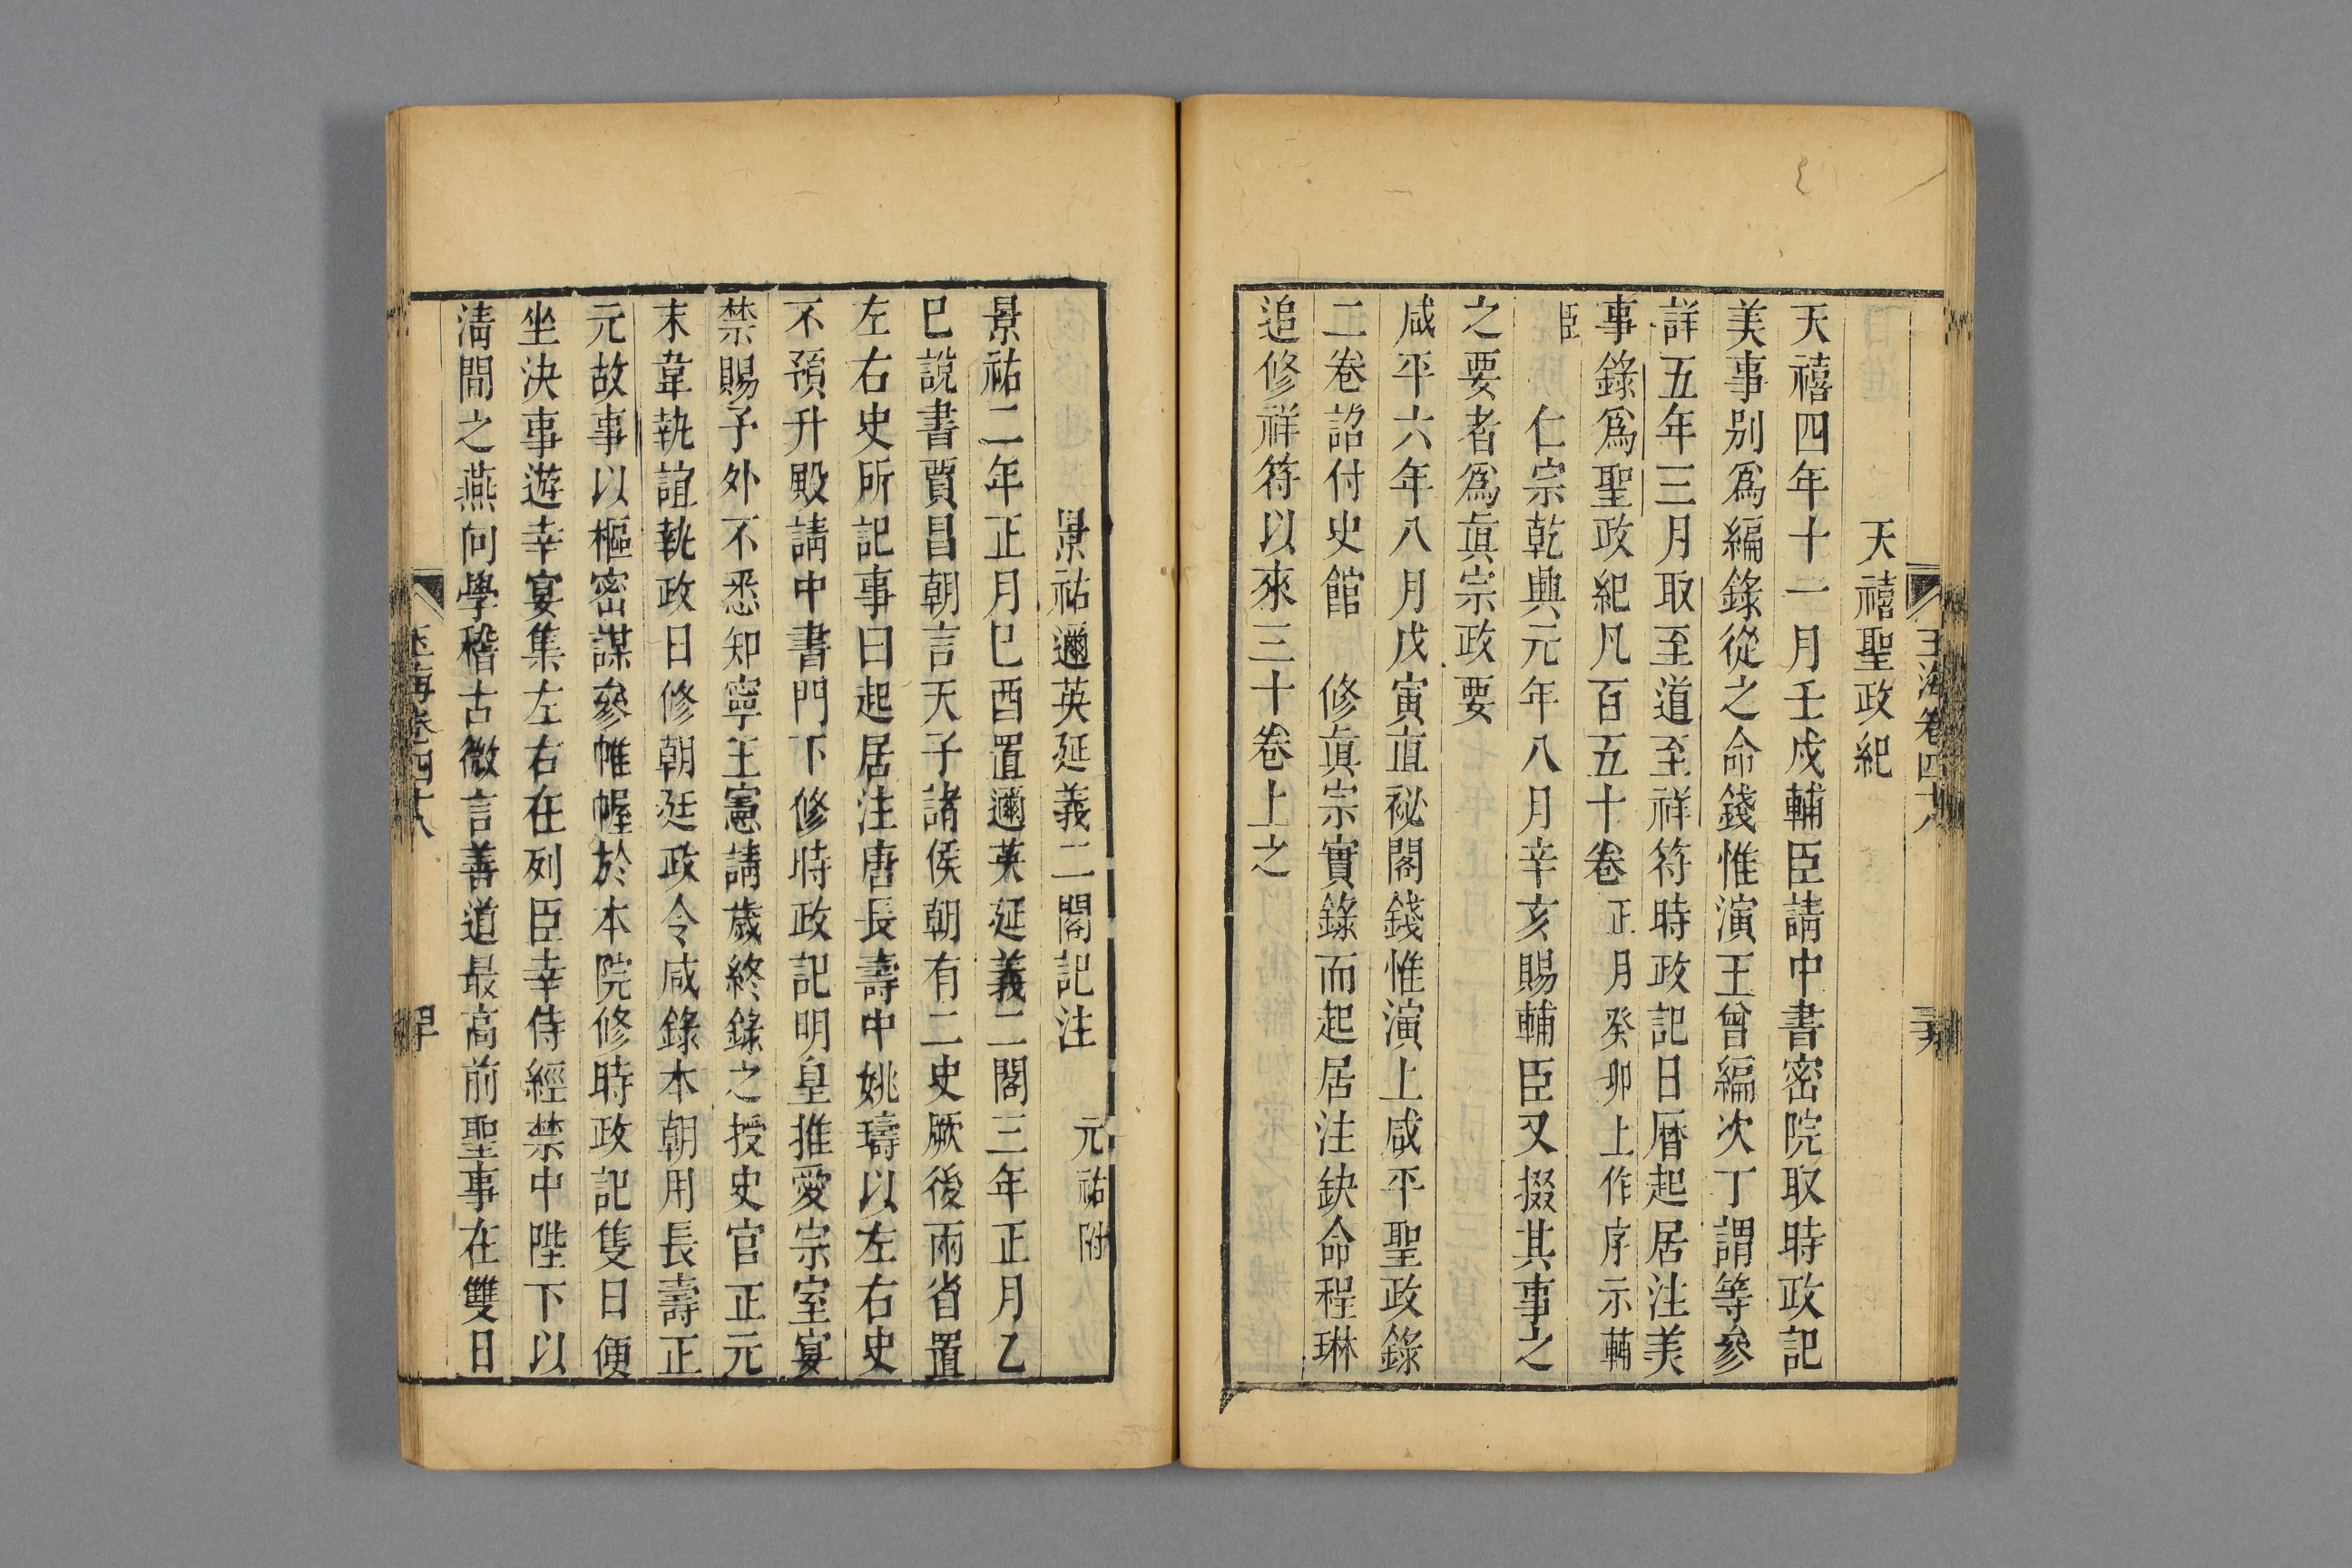 玉海卷四十八
天禧聖政紀
天禧四年十一月壬戌輔臣請中書密院取時政記
美事別爲編錄從之命錢惟演王曾編次丁謂等參
詳五年三月取至道至祥符時政記日曆起居注美
事錄爲聖政紀凡百五十卷正月癸卯上作序示輔
臣 仁宗乾興元年八月辛亥賜輔臣又掇其事之
之要者爲真宗政要
咸平六年八月戊寅直祕閣錢惟演上咸平聖政錄
二卷詔付史館 修真宗實錄而起居注缺命程琳
追修祥符以來三十卷上之
景祐邇英延義二閣記注 元祐附
景祐二年正月巳酉置邇英延義二閣三年正月乙
巳說書賈昌朝言天子諸侯朝有二史厥後兩省置
左右史所記事曰起居注唐長壽中姚璹以左右史
不預升殿請中書門下修時政記明皇推愛宗室宴
禁賜予外不悉知寧王憲請歲終錄之授史官正元
末韋執誼執政日修朝廷政令咸錄本朝用長壽正
元故事以樞密謀參帷幄於本院修時政記隻日便
坐決事遊幸宴集左右在列臣幸侍經禁中陛下以
清閒之燕向學稽古微言善道最高前聖事在雙日
玉海卷四十八
四十